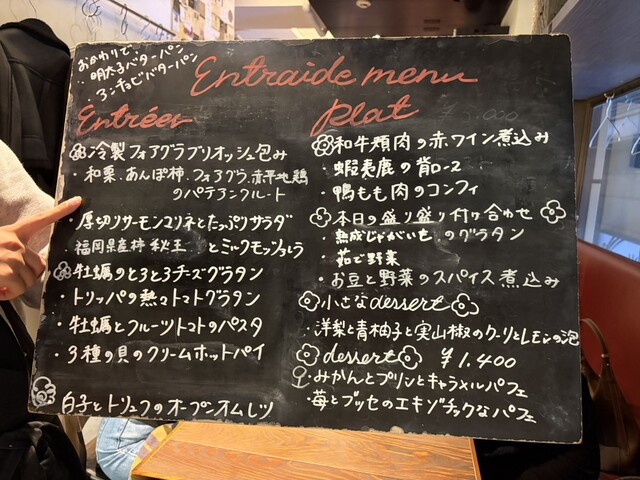 おかわりで、
・明太子バターパン
・アンチョビバターパン
Entraide menu
Entrées
冷製フォアグラブリオッシュ包み
・和栗、あんぽ柿、フォアグラ、赤平地鶏
のパテアンクルート
・厚切りサーモンマリネとたっぷりサラダ
・福岡県産柿 秋王 とミルクモッツァレラ
牡蠣のとろとろチーズグラタン
・トリッパの熱々トマトグラタン
・牡蠣とフルーツトマトのパスタ
・3種の貝のクリームホットパイ
白子とトリュフのオープンオムレツ
Plat
和牛頬肉の赤ワイン煮込み
・蝦夷鹿の背ロース
・鴨もも肉のコンフィ
本日の盛り盛り付け合わせ
・熟成じゃがいものグラタン
・茹で野菜
・お豆と野菜のスパイス煮込み
小さなdessert
・洋梨と青柚子と実山椒のクーリとLEmonの泡
dessert ¥1,400
・みかんとプリンとキャラメルパフェ
・苺とブッセのエキゾチックなパフェ